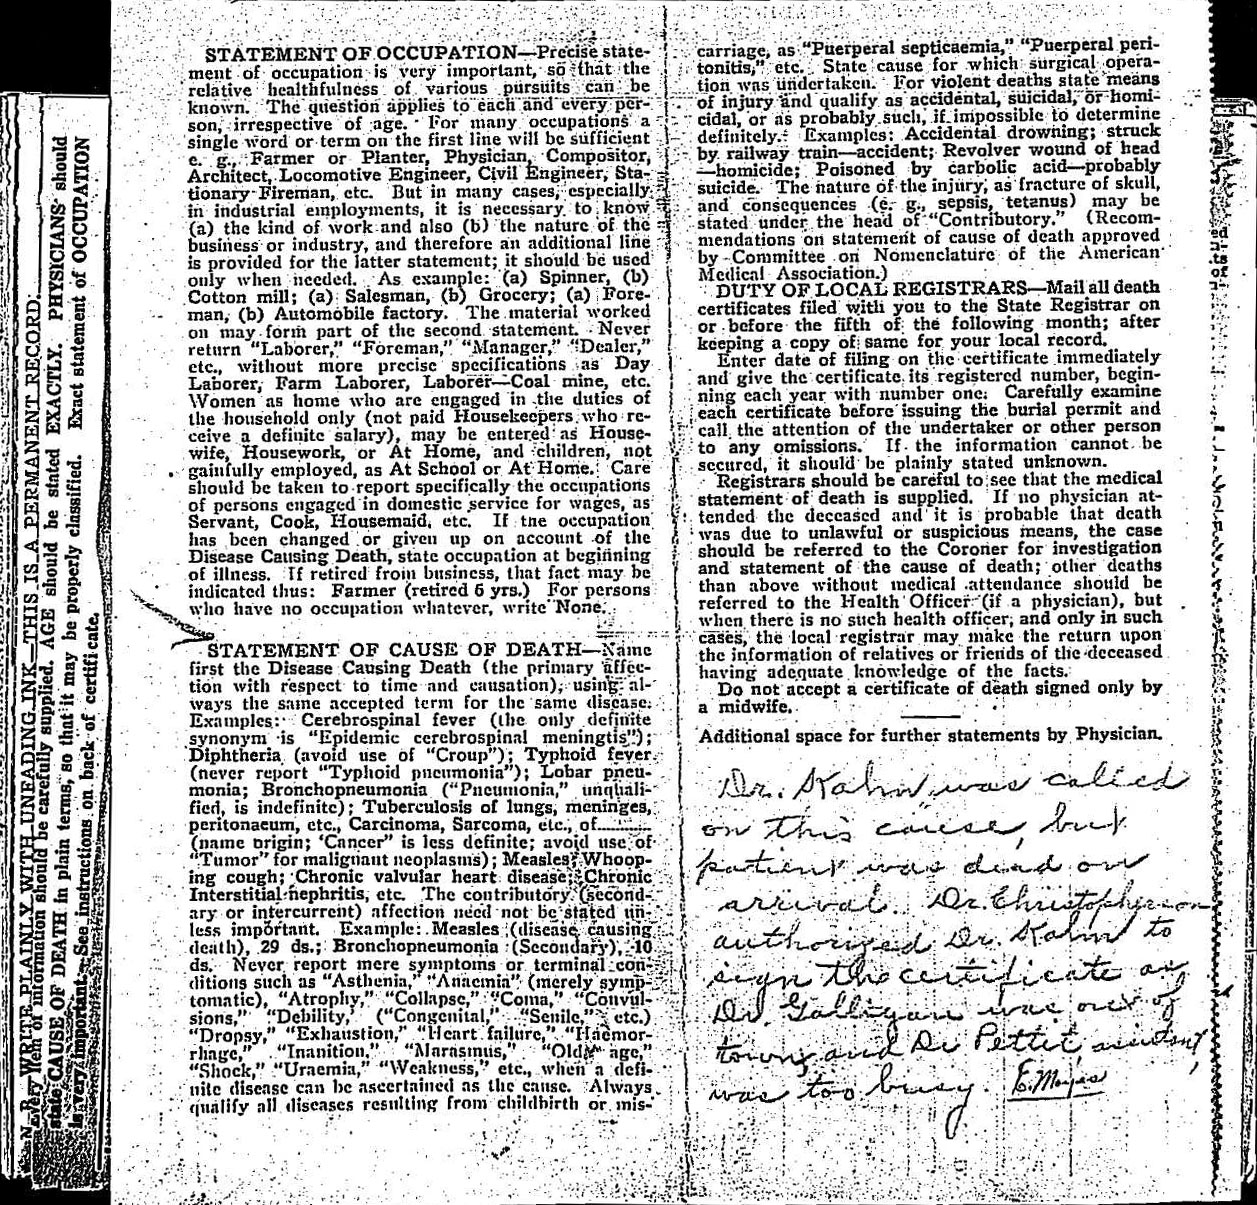 STATEMENT OF OCCUPATION—Precise state-
ment of occupation is very important, so that the
relative healthfulness of various pursuits can be
known. The question applies to each and every per-
son, irrespective of age. For many occupations a
single word or term on the first line will be sufficient
e. g., Farmer or Planter, Physician, Compositor,
Architect, Locomotive Engineer, Civil Engineer, Sta-
tionary Fireman, etc. But in many cases, especially
in industrial employments, it is necessary to know
(a) the kind of work and also (b) the nature of the
business or industry, and therefore an additional line
is provided for the latter statement; it should be used
only when needed. As example: (a) Spinner, (b)
Cotton mill; (a) Salesman, (b) Grocery; (a) Fore-
man, (b) Automobile factory. The material worked
on may form part of the second statement. Never
return "Laborer," "Foreman," "Manager," "Dealer,"
etc., without more precise specifications as Day
Laborer, Farm Laborer, Laborer—Coal mine, etc.
Women as home who are engaged in the duties of
the household only (not paid Housekeepers who re-
ceive a definite salary), may be entered as House-
wife, Housework, or At Home, and children, not
gainfully employed, as At School or At Home. Care
should be taken to report specifically the occupations
of persons engaged in domestic service for wages, as
Servant, Cook, Housemaid, etc. If tne occupation
has been changed or given up on account of the
Disease Causing Death, state occupation at beginning
of illness. If retired from business, that fact may be
indicated thus: Farmer (retired 6 yrs.) For persons
who have no occupation whatever, write None.
STATEMENT OF CAUSE OF DEATH—Name
first the Disease Causing Death (the primary affec-
tion with respect to time and causation), using al-
ways the same accepted term for the same disease.
Examples: Cerebrospinal fever (the only definite
synonym is "Epidemic cerebrospinal meningtis");
Diphtheria (avoid use of "Croup"); Typhoid fever
(never report "Typhoid pneumonia"); Lobar pneu-
monia; Bronchopneumonia ("Pneumonia," unquali-
fied, is indefinite); Tuberculosis of lungs, meninges,
peritonaeum, etc., Carcinoma, Sarcoma, etc., of..........
(name origin; 'Cancer" is less definite; avoid use of
"Tumor" for malignant neoplasms); Measles; Whoop-
ing cough; Chronic valvular heart disease; Chronic
Interstitial nephritis, etc. The contributory (second-
ary or intercurrent) affection need not be stated un-
less important. Example: Measles (disease causing
death), 29 ds.; Bronchopneumonia (Secondary), 10
ds. Never report mere symptoms or terminal con-
ditions such as "Asthenia," "Anaemia" (merely symp-
tomatic), "Atrophy," "Collapse," "Coma," "Convul-
sions," "Debility," ("Congenital," "Senile," etc.)
"Dropsy," "Exhaustion," "Heart failure," "Haemor-
rhage," "Inanition," "Marasmus," "Old age,"
"Shock," "Uraemia," "Weakness," etc., when a defi-
nite disease can be ascertained as the cause. Always
qualify all diseases resulting from childbirth or mis-
carriage, as "Puerperal septicaemia," "Puerperal peri-
tonitis," etc. State cause for which surgical opera-
tion was undertaken. For violent deaths state means
of injury and qualify as accidental, suicidal, or homi-
cidal, or as probably such, if impossible to determine
definitely. Examples: Accidental drowning; struck
by railway train—accident; Revolver wound of head
—homicide; Poisoned by carbolic acid—probably
suicide. The nature of the injury, as fracture of skull,
and consequences (e. g., sepsis, tetanus) may be
stated under the head of "Contributory." (Recom-
mendations on statement of cause of death approved
by Committee on Nomenclature of the American
Medical Association.)
DUTY OF LOCAL REGISTRARS—Mail all death
certificates filed with you to the State Registrar on
or before the fifth of the following month; after
keeping a copy of same for your local record.
Enter date of filing on the certificate immediately
and give the certificate its registered number, begin-
ning each year with number one. Carefully examine
each certificate before issuing the burial permit and
call the attention of the undertaker or other person
to any omissions. If the information cannot be
secured, it should be plainly stated unknown.
Registrars should be careful to see that the medical
statement of death is supplied. If no physician at-
tended the deceased and it is probable that death
was due to unlawful or suspicious means, the case
should be referred to the Coroner for investigation
and statement of the cause of death; other deaths
than above without medical attendance should be
referred to the Health Officer (if a physician), but
when there is no such health officer, and only in such
cases, the local registrar may make the return upon
the information of relatives or friends of the deceased
having adequate knowledge of the facts.
Do not accept a certificate of death signed only by
a midwife.
Additional space for further statements by Physician.
Dr. Kahn was called
on this case, but
patient was dead on
arrival. Dr. Christopherson
authorized Dr. Kahn to
sign the certificate as
Dr. Galligan was out of
town, and Dr Pettit, assistant,
was too busy. E. Moyes
N. B. WRITE PLAINLY WITH UNFADING INK—THIS IS A PERMANENT RECORD.
Every item of information should be carefully supplied. AGE should be stated EXACTLY. PHYSICIANS should
state CAUSE OF DEATH in plain terms, so that it may be properly classified. Exact statement of OCCUPATION
is very important. See instructions on back of certificate.